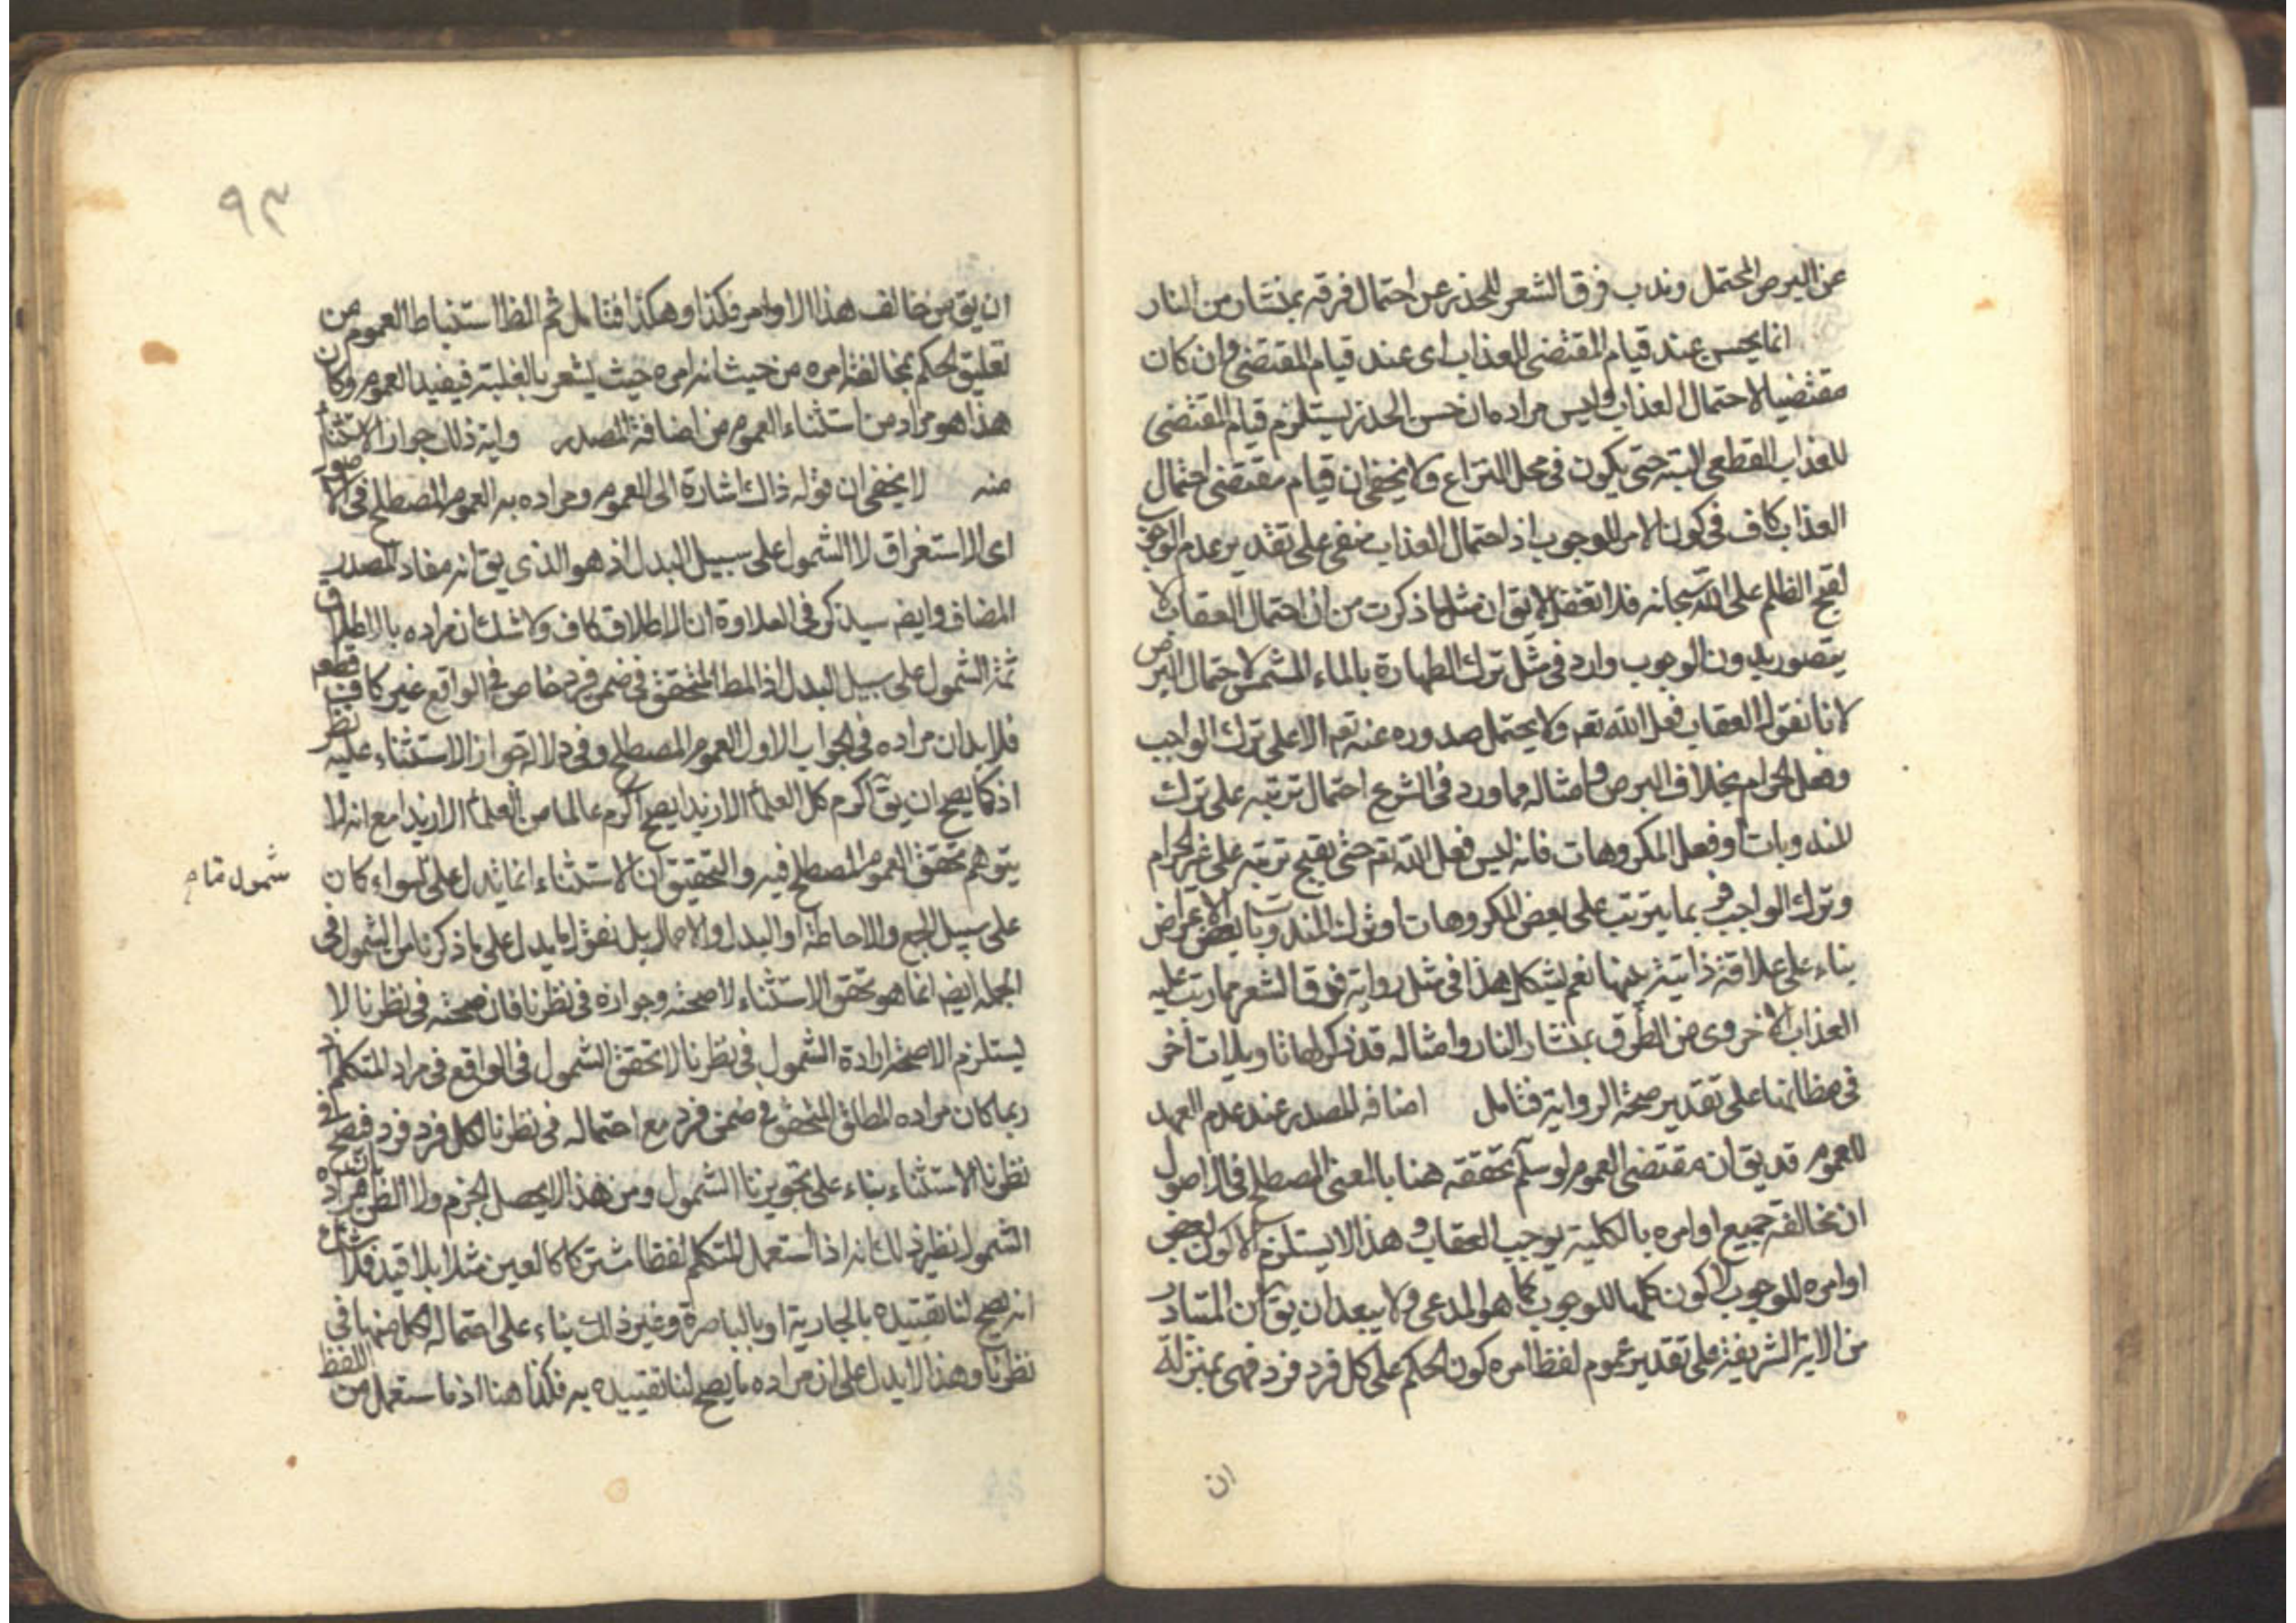 عن البرص المحتمل وندب فرق الشعر للحذر عن احتمال فرقه بمنشار من النار
انما يحسن عند قيام المقتضى للعذاب اى عند قيام المقتضى وان كان
مقتضيا لاحتمال العذاب وليس مراده ان حسن الحذر يستلزم قيام المقتضى
للعذاب القطعى البتة حتى يكون فى محل النزاع ولا يخفى ان قيام مقتضى احتمال
العذاب كاف فى كون الامر للوجوب اذ احتمال العذاب منفى على تقدير عدم الوجوب
لقبح الظلم على الله سبحانه فلا تغفل لا يق ان مثل ما ذكرت من ان احتمال العقاب لا
يتصور بدون الوجوب وارد فى مثل ترك الطهارة بالماء المشمس لاحتمال البرص
لانا نقول العقاب فعل الله تعم ولا يحتمل صدوره عنه تعم الا على ترك الواجب
وفعل الحرام بخلاف البرص وامثاله مما ورد فى الشرع احتمال ترتبه على ترك
المندوبات او فعل المكروهات فانه ليس فعل الله تعم حتى يقبح ترتبه على غير الحرام
وترك الواجب بما يترتب على بعض المكروهات او ترك المندوبات بعض الاعراض
بناء على علاقة ذاتية بينهما نعم يشكل هذا فى مثل رواية فرق الشعر مما رتب عليه
العذاب الاخروى من الفرق بمنشار النار وامثاله قد ذكر لها تاويلات أخر
فى مظانها على تقدير صحة الرواية فتامل اضافه المصدر عند عدم العهد
للعموم قد يق ان مقتضى العموم لو سلم تحققه هنا بالمعنى المصطلح فى الاصول
ان مخالفة جميع اوامره بالكلية يوجب العقاب وهذا لا يستلزم الا كون بعض
اوامره للوجوب لا كون كلها للوجوب كما هو المدعى ولا يبعد ان يق ان المتبادر
من الاية الشريفة على تقدير عموم لفظ امره كون الحكم على كل فرد فرد فهى بمنزلة
ان
٩٣
ان يق من خالف هذا الاوامر فكذا وهكذا فتامل ثم الظ استنباط العموم من
تعليق الحكم بمخالفة امره من حيث انه امره حيث يشعر بالعلية فيفيد العموم وكان
هذا هو مراد من استثناء العموم من اضافة المصدر واية ذلك جواز الاستثناء
منه لا يخفى ان قوله ذلك اشارة الى العموم ومراده به العموم المصطلح فى الاصول
اى الاستغراق لا الشمول على سبيل البدل اذ هو الذى يق انه مفاد المصدر
المضاف وايضم سيذكر فى العلاوة ان الاطلاق كاف ولا شك ان مراده بالاطلاق
ثمة الشمول على سبيل البدل اذ المط المتحقق فى ضمن فرد خاص فى الواقع غير كاف قطعم
فلا بد ان مراده فى الجواب الاول العموم المصطلح وفى دلالة جواز الاستثناء عليه نظر
اذ كما يصح ان يق اكرم كل العلماء الا زيدا يصح اكرم عالما من العلماء الا زيدا مع انه لا
يتوهم تحقق العموم المصطلح فيه والتحقيق ان الاستثناء انما يدل على سواء كان
شمول تام
على سبيل الجمع والاحاطة او البدل والاحمال بل نقول ما يدل على ما ذكرنا من الشمول فى
الجملة ايضم انما هو تحقق الاستثناء لا صحته وجوازه فى نظرنا فان صحته فى نظرنا لا
يستلزم الا صحة ارادة الشمول فى نظرنا لا تحقق الشمول فى الواقع فى مراد المتكلم اذ
ربما كان مراده المطلق المتحقق فى ضمن فرد مع احتماله فى نظرنا لكل فرد فرد فصح فى
نظرنا الاستثناء بناء على تجويزنا الشمول ومن هذا لا يحصل الجزم ولا الظن بمراده
الشمول نظير ذلك انه اذا استعمل المتكلم لفظا مشتركا كالعين مثلا بلا قيد فلا شك
انه يصح لنا تقييده بالجارية او بالباصرة وغير ذلك بناء على احتماله لكل منها فى
نظرنا وهذا لا يدل على ان مراده ما يصح لنا تقييده به فكذا هنا اذ ما استعمل من اللفظ